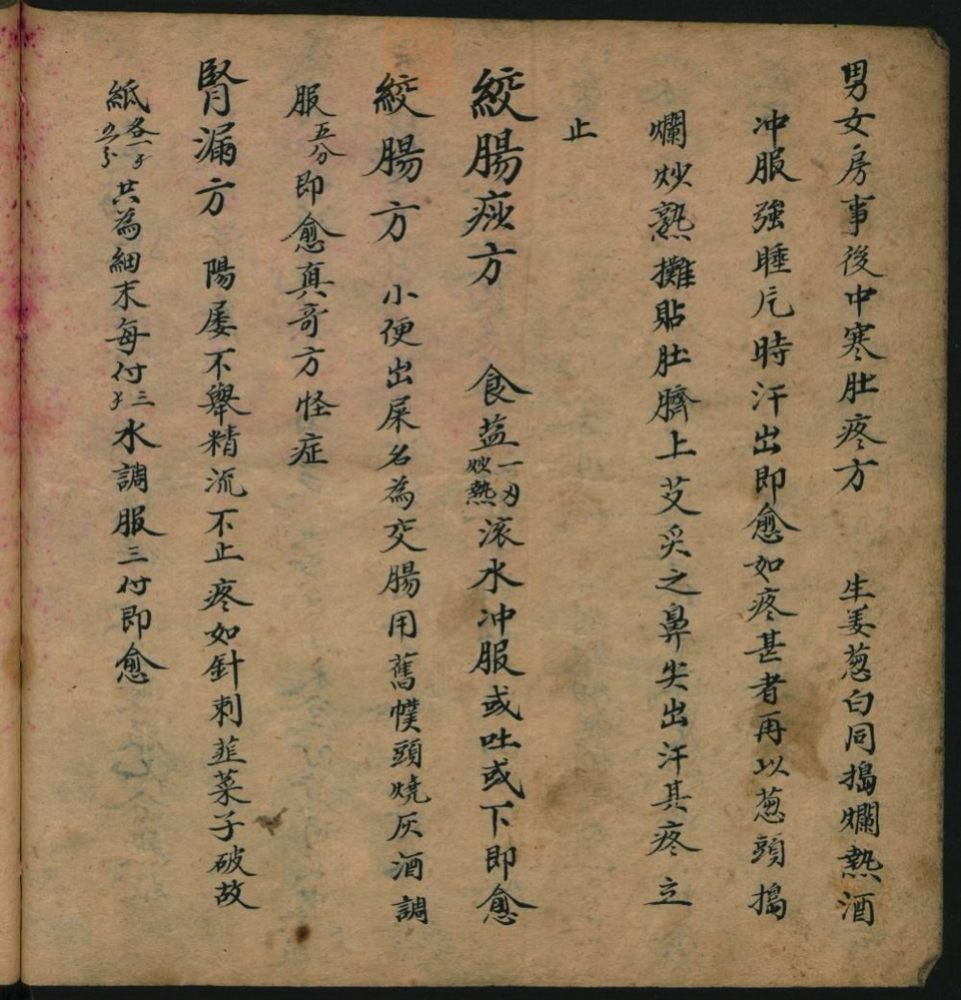 男女房事後中寒肚疼方 生姜葱白同搗爛熱酒
冲服強睡片時汗出即愈如疼甚者再以葱頭搗
爛炒熟攤貼肚臍上艾炙之鼻尖出汗其疼立
止
絞腸痧方 食盐一刄炒熟滚水冲服或吐或下即愈
絞腸方 小便出屎名為交腸用舊幞頭燒灰酒調
服五分即愈真奇方怪症
腎漏方 陽屡不舉精流不止疼如針刺韮菜子破故
紙各一子共為細末每付三子水調服三付即愈